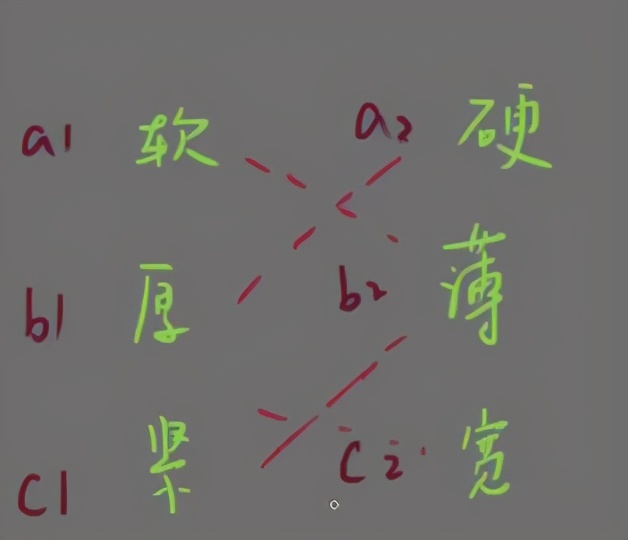 a1 软 a2 硬
b1 厚 b2 薄
c1 紧 c2 宽